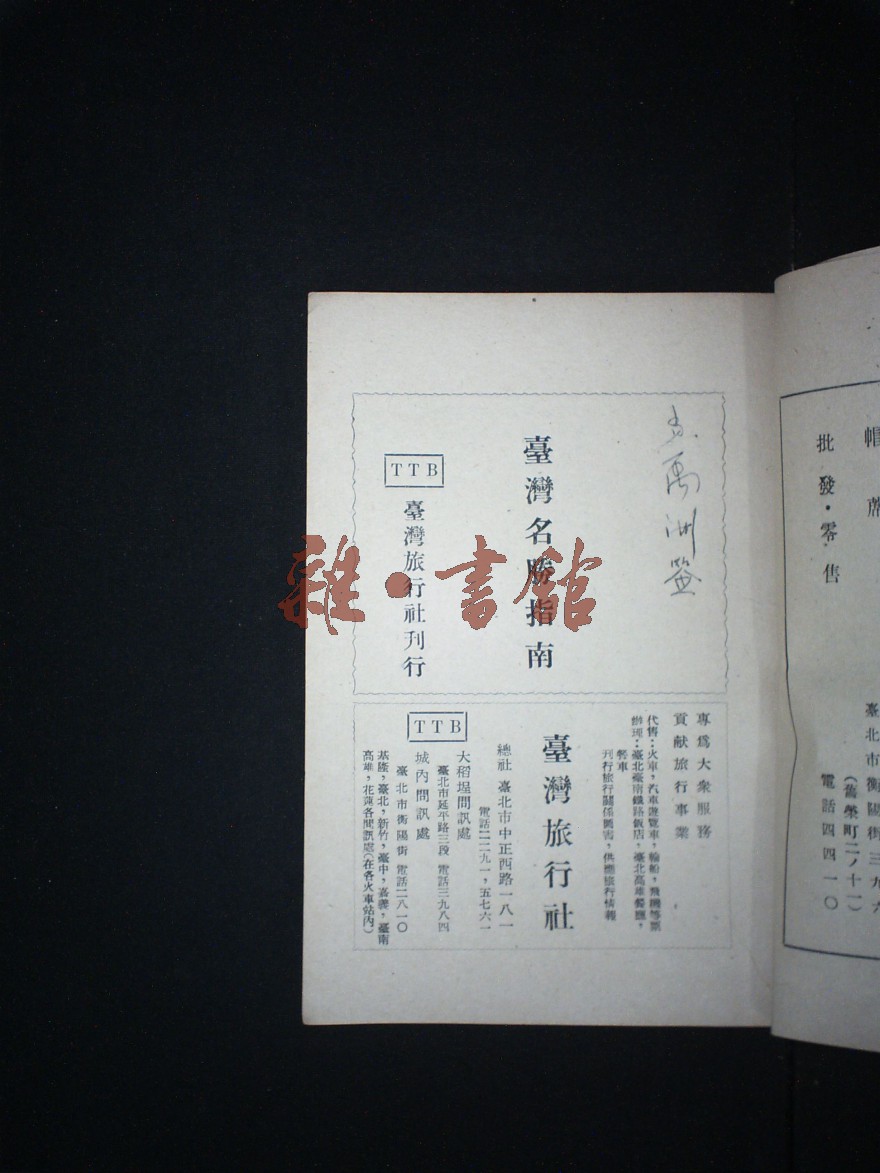 禹洲簽
臺灣名勝指南
TTB
臺灣旅行社刊行
雜·書館
專爲大衆服務
貢献旅行事業
代售：火車，汽車遊覽車，輪船，飛機等票
辦理：臺北臺南鐵路飯店，臺北高雄餐廳，
餐車
刊行旅行關係圖書，供應旅行情報
臺灣旅行社
總社 臺北市中正西路一八一
電話二二九一，五七六一
TTB
大稻埕問訊處
臺北市延平路三段 電話三九八四
城內問訊處
臺北市衡陽街 電話二八一〇
基隆，臺北，新竹，臺中，嘉義，臺南
高雄，花蓮各問訊處（在各火車站內）
帽蓆
批發·零售
臺北市衡陽街三九六
（舊榮町二ノ十一）
電話四四一〇